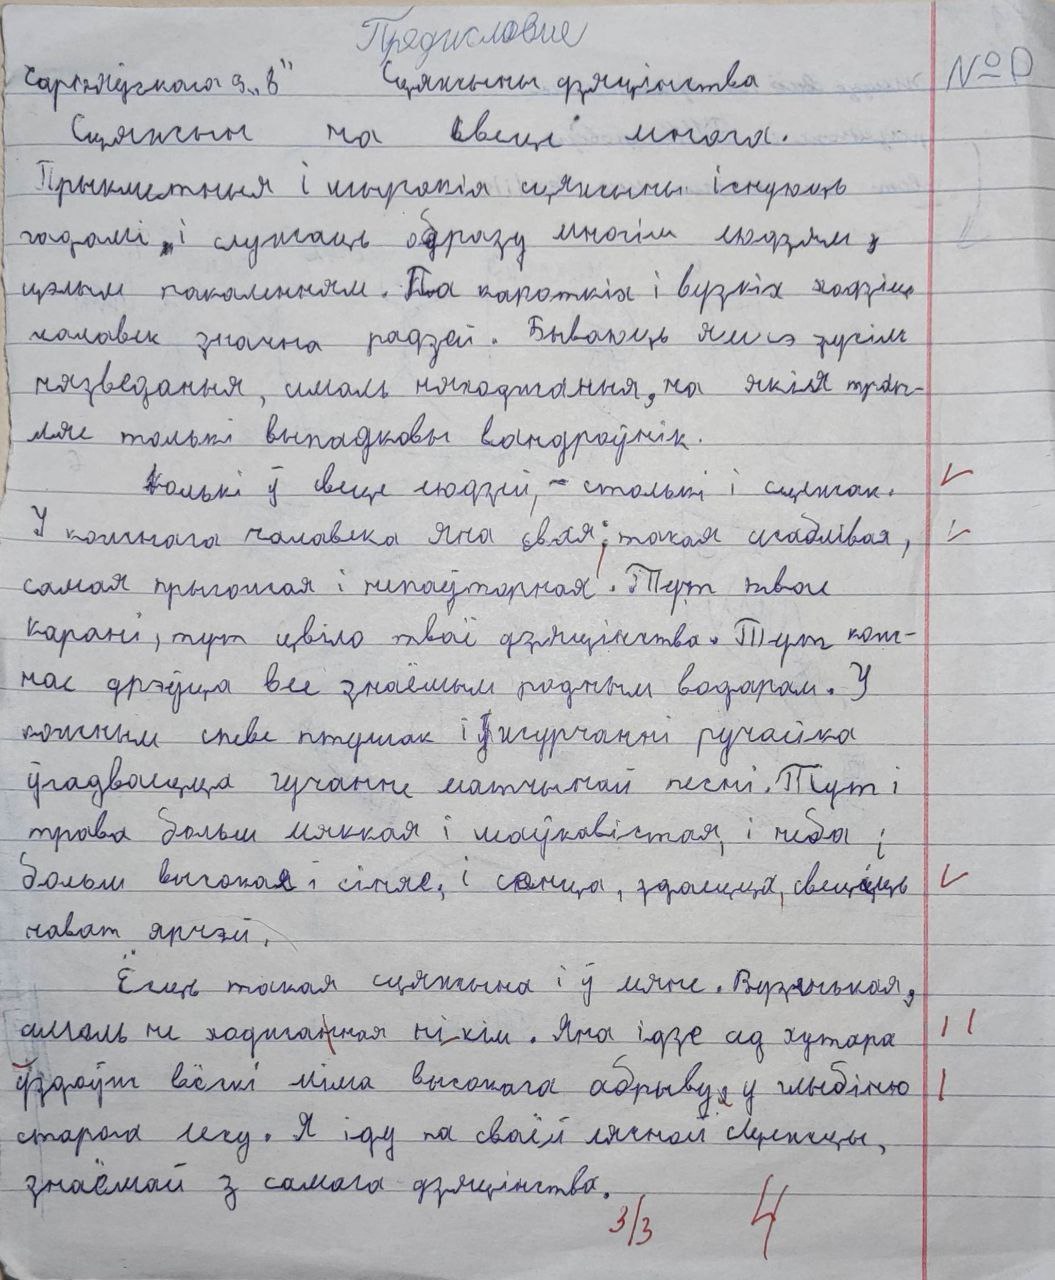 Предисловие
9 „В" Сцяжыны дзяцінства
№ D
Сцяжын на свеце многа.
Прыкметныя і шырокія сцяжыны існуюць
гадамі, і служаць адразу многім людзям,
цэлым пакаленням. Па кароткіх і вузкіх ходзіць
чалавек значна радзей. Бываюць яшчэ зусім
нязведаныя, амаль няходжаныя, на якія трап-
ляе толькі выпадковы вандроўнік.
Колькі ў свеце людзей, - столькі і сцежак.
У кожнага чалавека яна свая, такая шчаблівая,
самая прыгожая і непаўторная. Тут твае
карані, тут цвіло тваё дзяцінства. Тут кож-
нае дрэўца вее знаёмым родным водарам. У
кожным спеве птушак і ў журчанні ручайка
ўгадваецца гучанне матчынай песні. Тут і
трава больш мяккая і шаўкавістая, і неба
больш высокае і сіняе, і сонца, здаецца, свеціць
нават ярчэй.
Ёсць такая сцяжына і ў мяне. Вузенькая,
амаль не ходжанная ні кім. Яна ідзе ад хутара
ўздоўж вёскі міма высокага абрыву, у глыбіню
старога лесу. Я іду па сваёй лясной сцежцы,
знаёмай з самага дзяцінства.
3/3 4